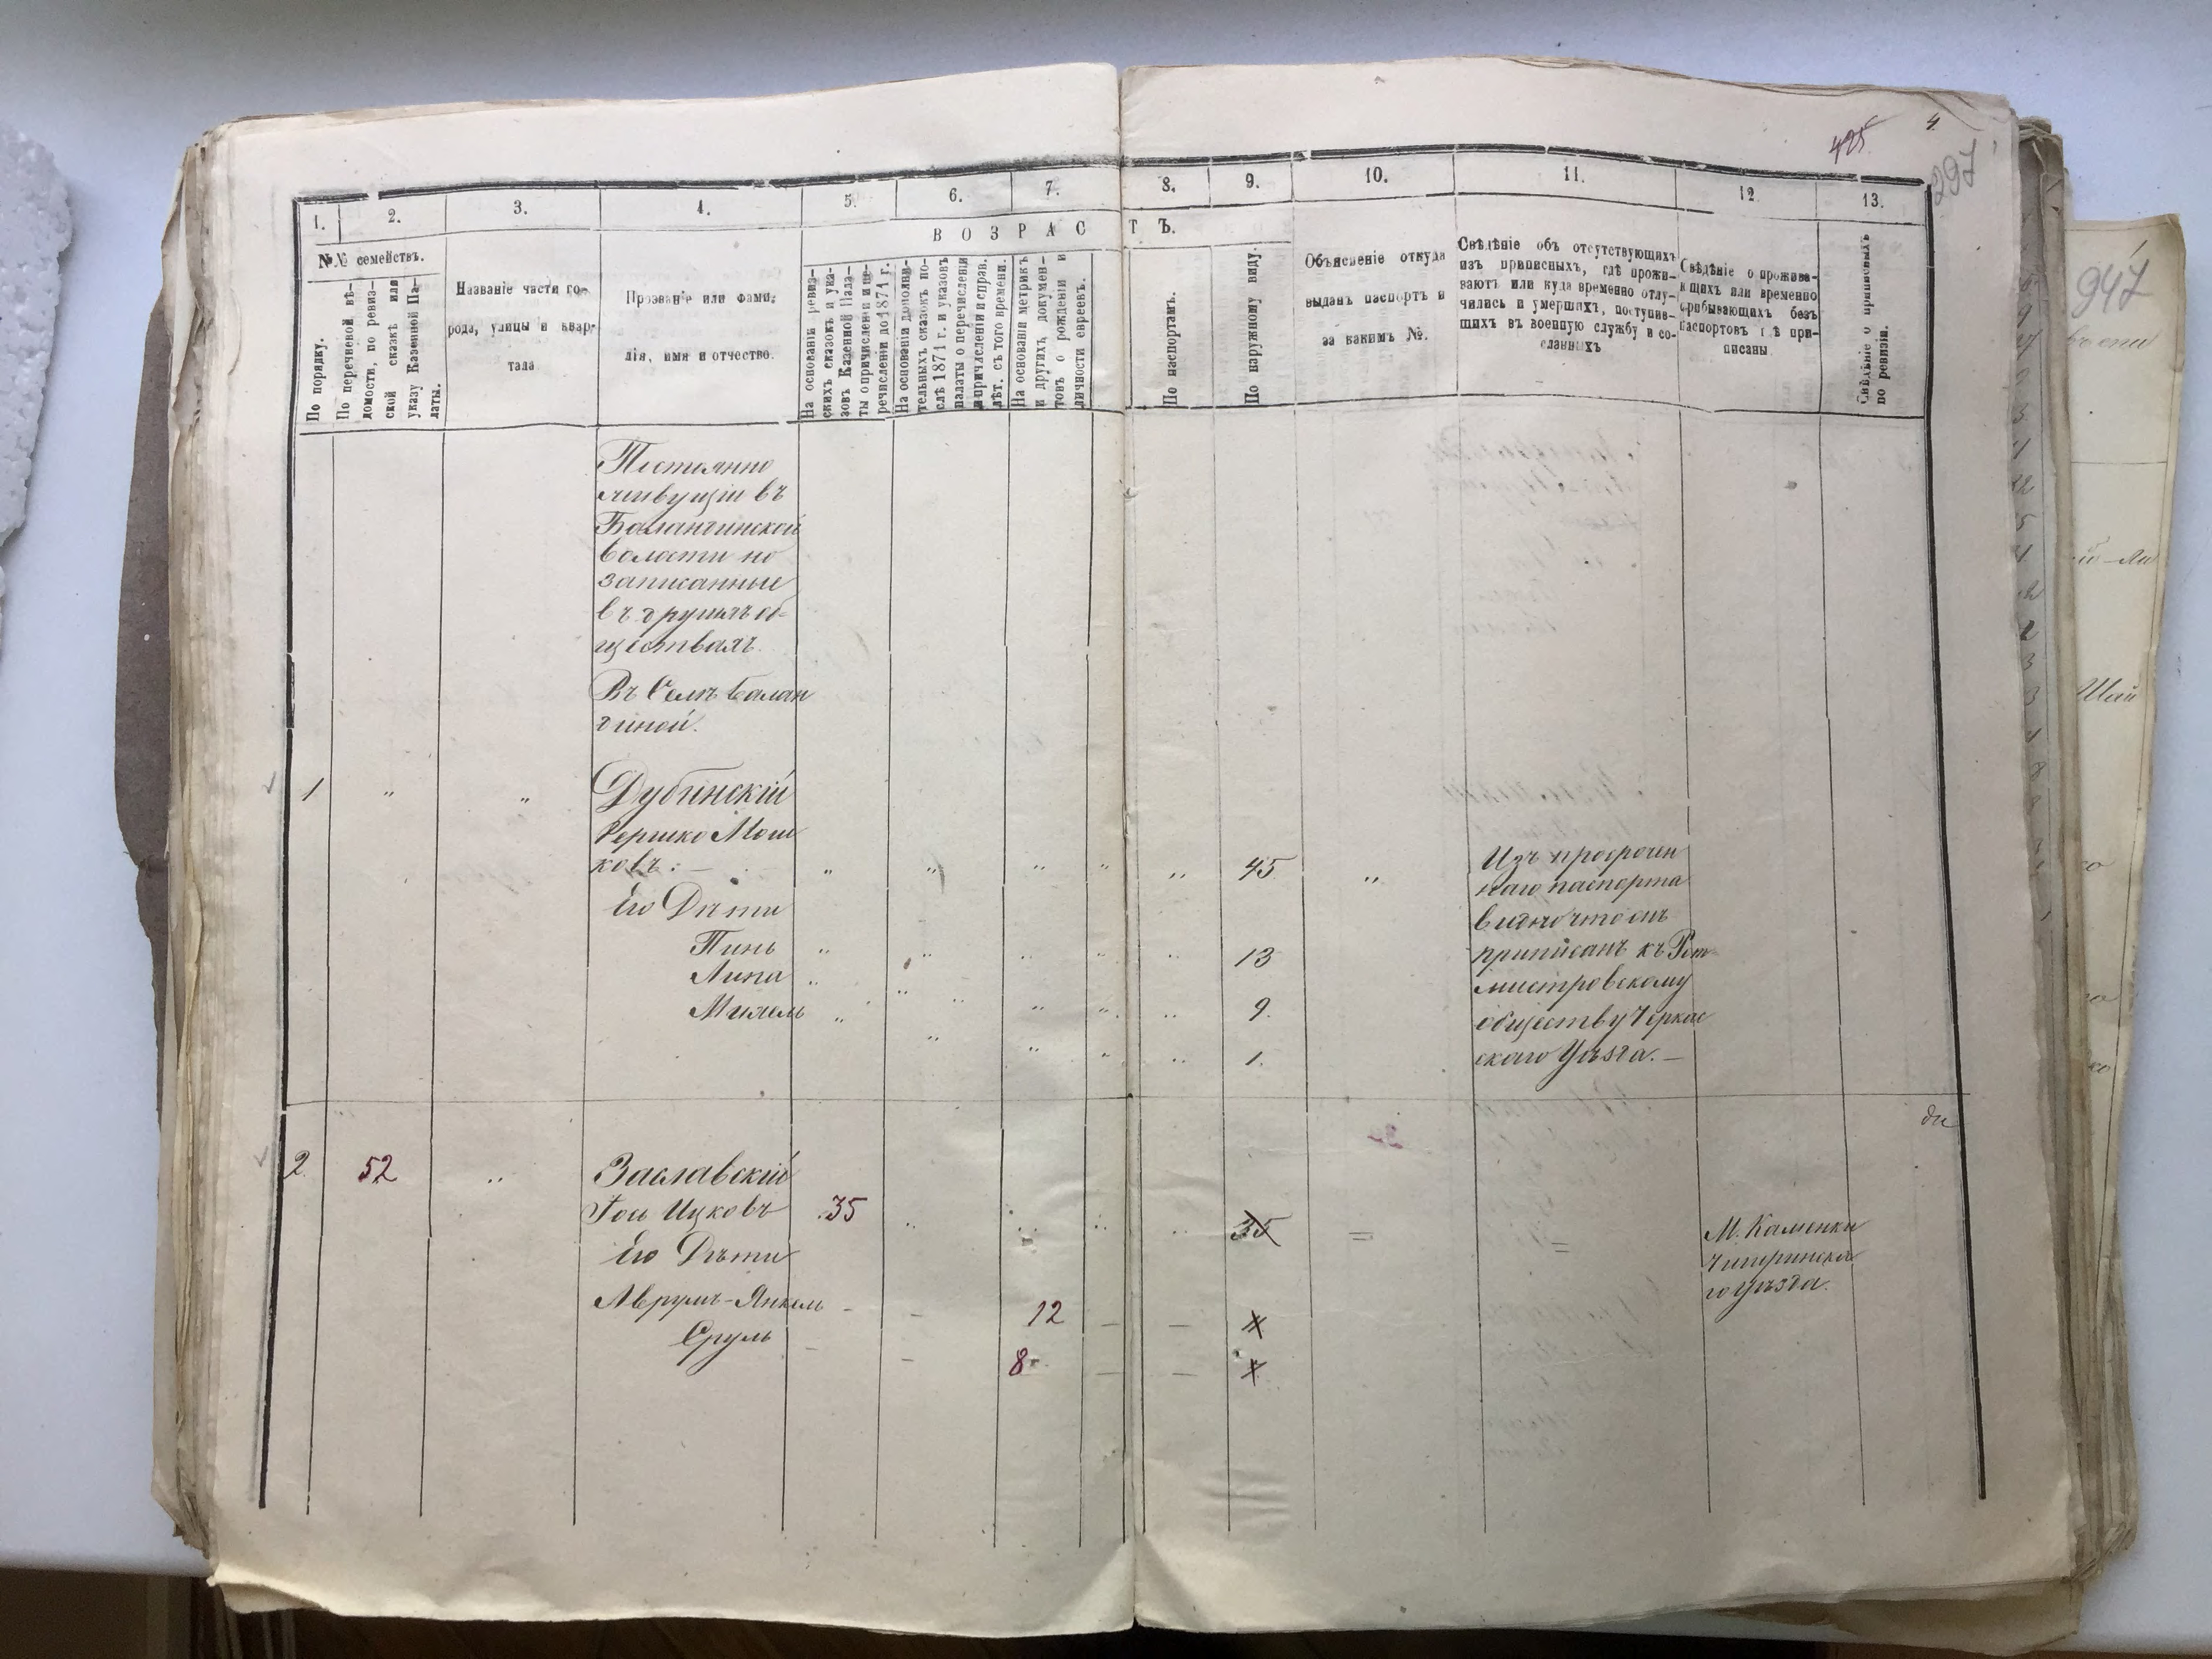 495
4.
297
1.
2.
3.
4.
5.
6.
7.
8.
9.
10.
11.
12.
13.
ВОЗРАСТЪ.
№№ семействъ.
По порядку.
По перечневой вѣ-
домости, по ревиз-
ской сказкѣ или
указу Казенной Па-
латы.
Названіе части го-
рода, улицы и квар-
тала
Прозваніе или фами-
лія, имя и отчество.
На основаніи ревиз-
скихъ сказокъ и ука-
зовъ Казенной Пала-
ты о причисленіи и пе-
речисленіи до 1871 г.
На основаніи дополни-
тельныхъ сказокъ по-
слѣ 1871 г. и указовъ
палаты о перечисленіи
и причисленіи и справ.
лѣт. съ того времени.
На основаніи метрикъ
и другихъ докумен-
товъ о рожденіи и
личности евреевъ.
По паспортамъ.
По наружному виду.
Объясненіе откуда
выданъ паспортъ и
за какимъ №.
Свѣдѣніе объ отсутствующихъ
изъ приписныхъ, гдѣ прожи-
ваютъ или куда временно отлу-
чились и умершихъ, поступив-
шихъ въ военную службу и со-
сланныхъ
Свѣдѣніе о прожива-
ющихъ или временно
прибывающихъ безъ
паспортовъ гдѣ при-
писаны
Свѣдѣніе о приписныхъ
по ревизіи.
Постоянно
живущіи въ
Баландинской
волости но
записанные
въ другихъ об-
ществахъ.
Въ Селѣ Балан
диной.
1 " " Дубинскій
Гершко Мош
ковъ: — " " " " " 45 "
Его Дѣти
Пинь " " " " " 13
Липа " " " " " 9.
Михель " " " " " 1.
Изъ просрочен
наго паспорта
видно что онъ
приписанъ къ Рот-
мистровскому
обществу Черкас
скаго Уѣзда. —
2. 52 " Заславскій
Іось Ицковъ 35 " " " " 35 = =
Его Дѣти
Аврумъ-Янкель - - 12 - -
Сруль - - 8 - -
М. Каменки
Чигринска
го уѣзда.
947
Шай